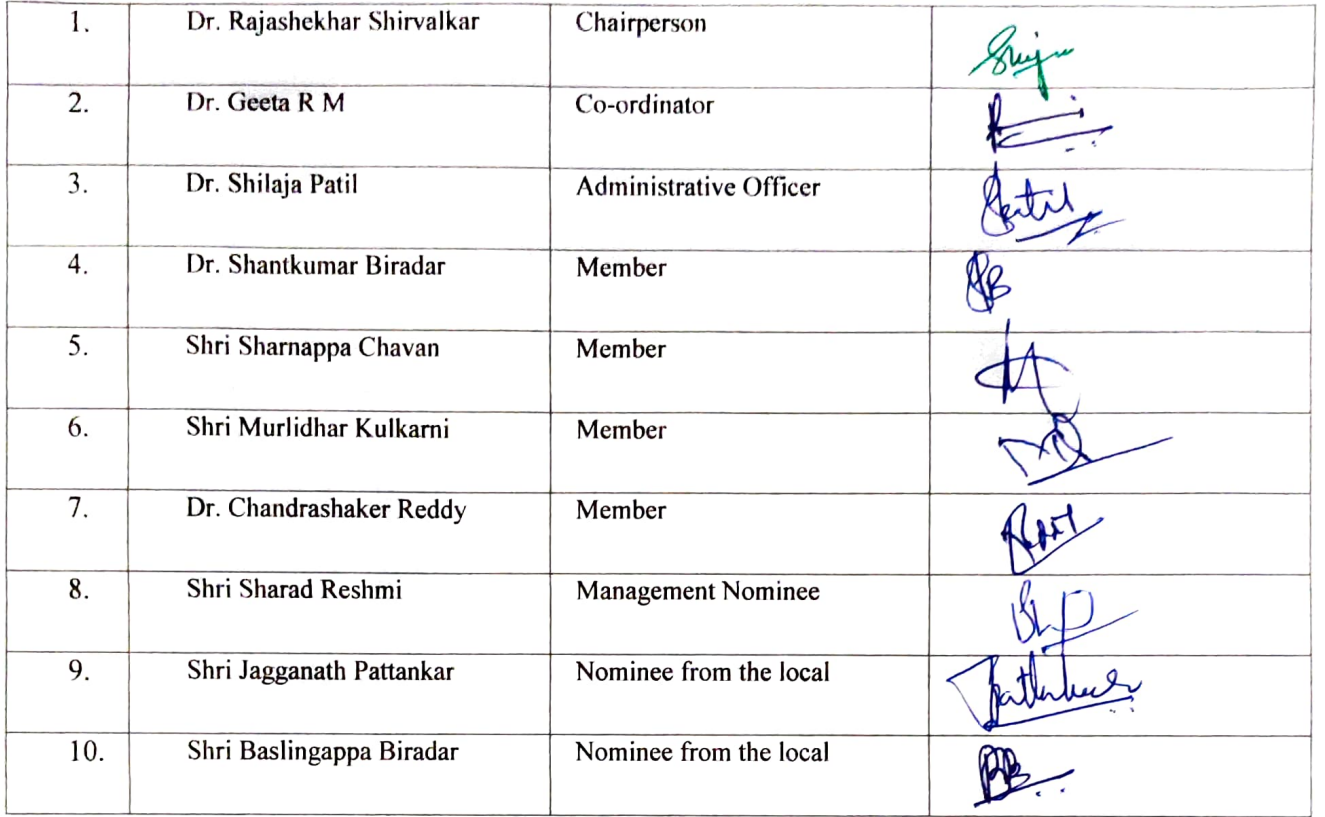 1. Dr. Rajashekhar Shirvalkar Chairperson
2. Dr. Geeta R M Co-ordinator
3. Dr. Shilaja Patil Administrative Officer
4. Dr. Shantkumar Biradar Member
5. Shri Sharnappa Chavan Member
6. Shri Murlidhar Kulkarni Member
7. Dr. Chandrashaker Reddy Member
8. Shri Sharad Reshmi Management Nominee
9. Shri Jagganath Pattankar Nominee from the local
10. Shri Baslingappa Biradar Nominee from the local